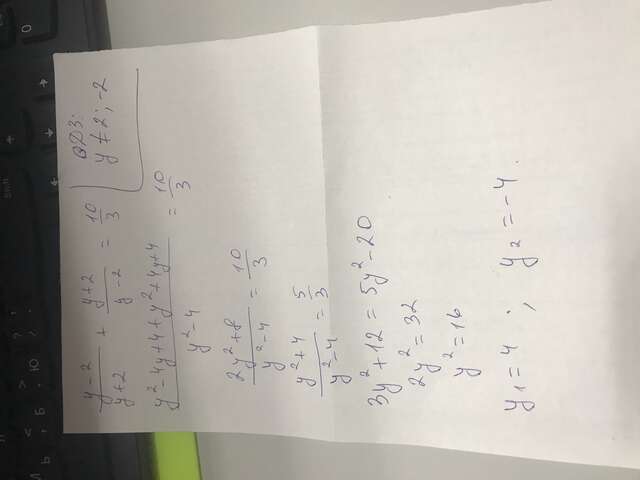 (y-2)/(y+2) + (y+2)/(y-2) = 10/3
ОДЗ:
y ≠ 2; -2
(y²-4y+4+y²+4y+4)/(y²-4) = 10/3
(2y²+8)/(y²-4) = 10/3
(y²+4)/(y²-4) = 5/3
3y²+12 = 5y²-20
2y² = 32
y² = 16
y₁ = 4 ; y₂ = -4.